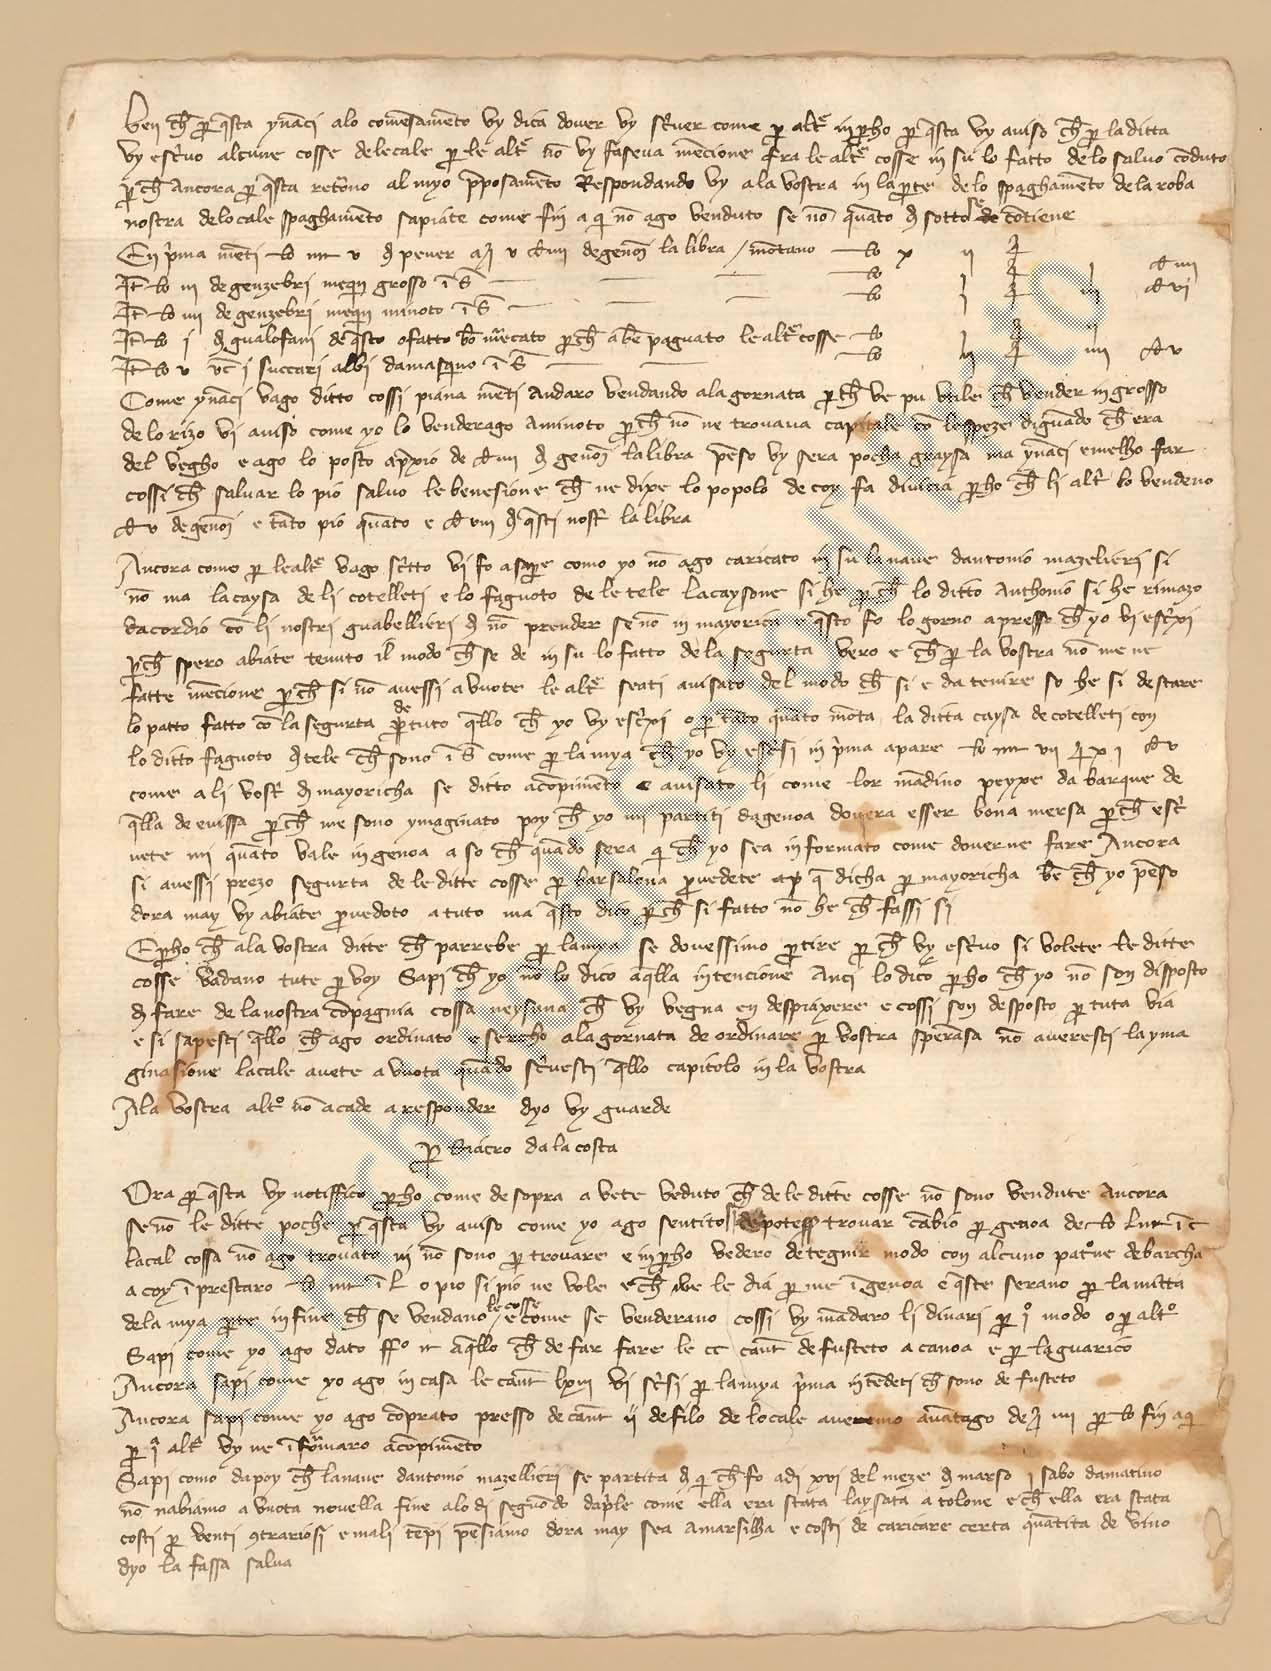 Ben ch̄ per q̄sta ynāci alo comēsamēto vy dica dover vy sc̄rver come per altr̄ inperho per q̄sta vy aviso ch̄ per la ditta
vy esc̄rivo alcune cosse delecale per le altr̄ nō vy faseva mēcione fra le altr̄ cosse in su lo fatto de lo salvo cōduto
perch̄ Ancora per q̄sta retōrno al myo pposamēto Respondando vy a la vostra in la perte de lo spaghamēto de la roba
nostra de locale spaghamēto sapiate come fin a qi nō ago venduto se nō quāto d sotto se cōtiene
En p̄rima mēti lb v d pever d v degenoī la libra / mōtano lb x ii
It̄ lb iii de genzebrj meqin grosso
It̄ lb iiii de genzebrj meqin minoto
It̄ lb j d gualofani de q̄sto o fatto bō m̄recato perch̄ abē paguato le altr̄ cosse lb
It̄ lb v j succari albi damasqino lb
Come ynāci vago ditto cossi piana mēti Andaro vendando ala gornata perch̄ ve pu utile ch̄ vender in grosso
de lo rizo vi aviso come yo lo venderago Aminoto perch̄ nō ne trovava capitale cō le speze diguādo ch̄ era
del vegho e ago lo posto ap̄rexio de d iiii d genoī la libra pēso vy sera pocha graysa ma ynāci e melho far
cossi ch̄ salvar lo pio salvo le benesione ch̄ ne dixe lo popolo de coy fa divicia perho ch̄ li altr̄ lo vendeno
d v de genoī e tāto pio quāto e d viii d q̄sti nostr̄ la libra
Ancora come per le altr̄ vago sc̄ritto vi fo asapere como yo nō ago caricato in su la nave dantonio mazelieri si
nō ma la caysa de li cotelleti e lo faguoto de le tele la caysone si he perch̄ lo ditto Anthonio si he rimazo
dacordio cō li nostri guabellieri d nō prender se nō in mayorica e q̄sto fo lo gorno apresso ch̄ yo vi esc̄rixi
perch̄ spero abiate tenuto il modo ch̄ se de in su lo fatto de la segurta vero e ch̄ per la vostra nō me ne
fatte mēcione perch̄ si nō avessi a vuote le altr̄ seati avisato del modo ch̄ si e da tenire so he si de stare
lo patto fatto cō la segurta de per tuto q̄llo ch̄ yo vy esc̄rixi o per tāto quāto mōta la ditta caysa de cotelleti con
lo ditto faguoto d tele ch̄ sono come per la mya ch̄ yo vy esc̄risi in p̄rima apare lb vii x j d v
come a li vostr̄ d mayoricha se ditto acōpimēto e avisato li come lor mādino peyxe da barque de
q̄lla de evissa perch̄ me sono ymaginato poy ch̄ yo mi partiti da genoa dovera esser bona mersa perch̄ esc̄r
vete mi quāto vale in genoa a so ch̄ quādo sera qi ch̄ yo sea informato come doverne fare Ancora
si avessi prezo segurta de le ditte cosse per barsalona p̄rovedete dicha per mayoricha bē ch̄ yo pēso
dora may vy abiate p̄rovedoto a tuto ma q̄sto dico perch̄ si fatto nō he ch̄ fassi si
Eperho ch̄ a la vostra ditte ch̄ parrebe per la mya se dovessimo pertire perch̄ vy esc̄rivo si volete le ditte
cosse vadano tute per voy Sapi ch̄ yo nō lo dico aq̄lla intencione Anci lo dico perho ch̄ yo nō son disposto
d fare de la nostra cōpagnia cossa neysuna ch̄ vy vegna en despiaxere e cossi son desposto per tuta via
e si sapesti q̄llo ch̄ ago ordinato e sercho ala gornata de ordinare per vostra sperāsa nō averesti la yma
ginasione lacale avete a vuota quādo sc̄rivesti q̄llo capitolo in la vostra
Ala vostra altr̄o nō acade a responder dyo vy guarde
per da la costa
Ora per q̄sta vy notiffico perho come de sopra avete veduto ch̄ de le ditte cosse nō sono vendute Ancora
se nō le ditte poche per q̄sta vy aviso come yo ago sentito si potess trovar cābio per genoa de lb
lacal cossa nō ago trovato ni nō sono per trovare e in perho vedero de tegnir modo con alcuno patrōne de barcha
a coy īprestaro lb o pio si pio ne vole e ch̄ ve le dia per me ī genoa e q̄ste serano per la mitta
de la mya perte in fine ch̄ se vendano le cosse e come se venderano cossi vy mādaro li dinari per j̊ modo o per altr̄o
Sapi come yo ago dato aq̄llo ch̄ de far fare le cc cānt de fusteto a canoa e per laguarico
Ancora sapi come yo ago in casa le cānt lxiii vi sc̄risi per la mya p̄rima intēdeti ch̄ sono de fusteto
Ancora sapi come yo ago cōprato presso de cānt ij de filo de lo cale averemo avātago de iiii per lb fin aqi
per j̊ altr̄ vy ne īformaro acōpimēto
Sapi como da poy ch̄ la nave dantonio mazellieri se partita d qi ch̄ fo adi xvj del meze d marso j sabo damatino
nō nabiamo a vuota novella fine alo dj seguōdo dap̄rile come ella era stata laysata a tolone e ch̄ ella era stata
costi per venti 9trariosi e mali tēpi pēsiamo dora may sea a marsilha e costi de caricare certa quātita de vino
dyo la fassa salva